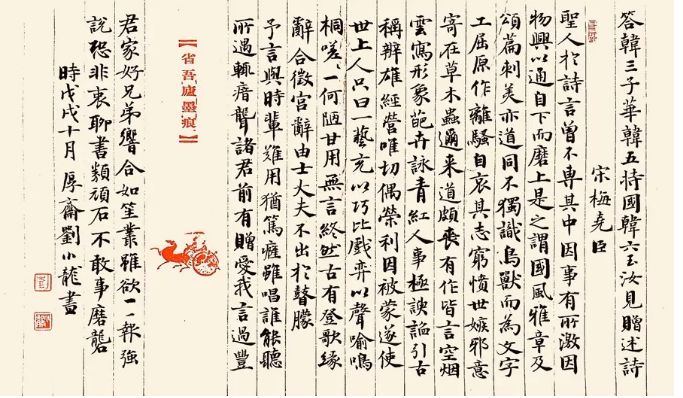 答韓三子華韓五持國韓六玉汝見贈述詩
宋梅堯臣
聖人於詩言曾不專其中因事有所激因
物興以通自下而磨上是之謂國風雅章及
頌篇刺美亦道同不獨識鳥獸而為文字
工屈原作離騷自哀其志窮憤世嫉邪意
寄在草木蟲邇来道頗喪有作皆言空烟
雲寫形象葩卉詠青紅人事極諛諂引古
稱辨雄經營唯切偶榮利因被蒙遂使
世上人只曰一藝充以巧比戲弈以聲喻鳴
桐嗟〻一何陋甘用無言終然古有登歌緣
辭合徵宮辭由士大夫不出於瞽矇
予言與時輩難用猶篤癃雖唱誰能聽
所過輒瘖聾諸君前有贈愛我言過豐
【省吾廬墨痕】
君家好兄弟響合如笙叢雖欲一一報強
說恐非衷聊書類頑石不敢事磨礱
時戊戌十月厚齋劉小龍書